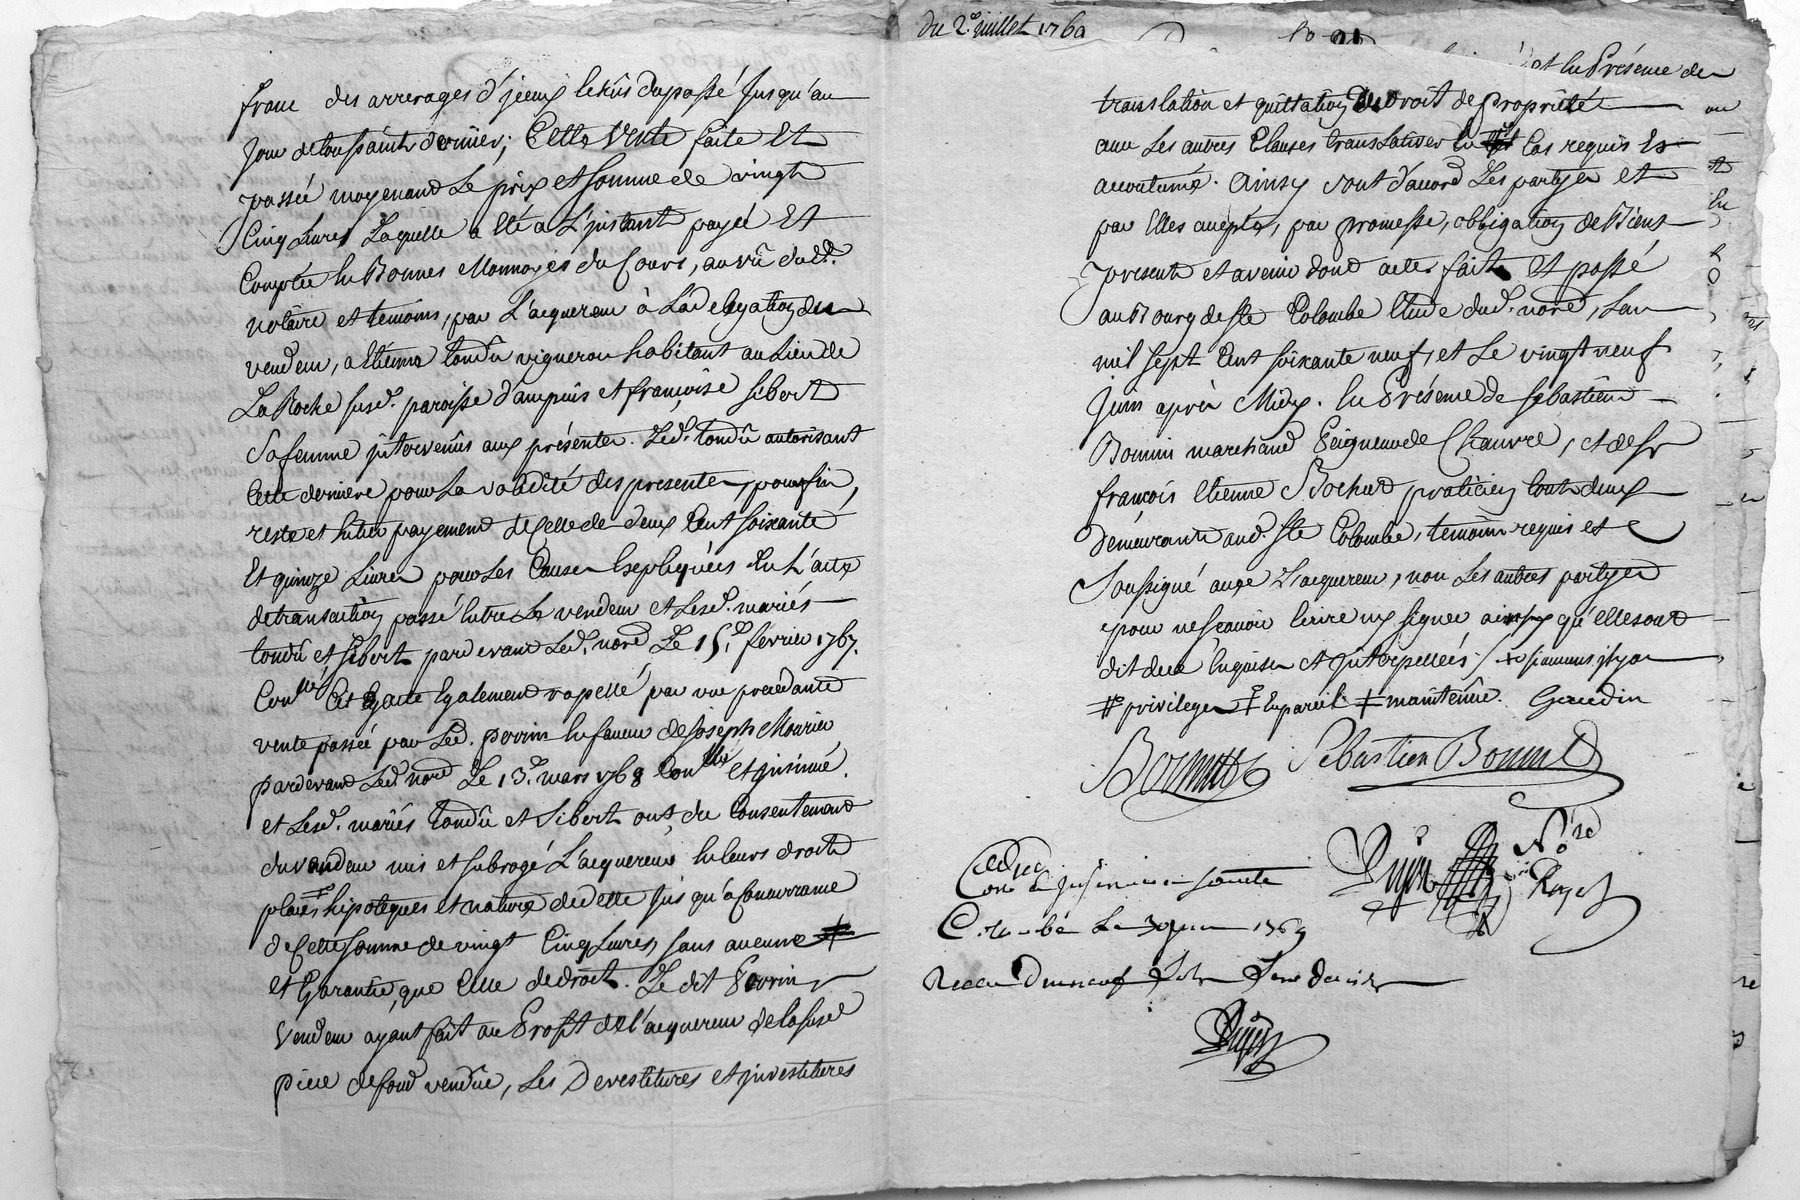 franc des arrerages d'jceux lettûs du passé jusqu'au
jour de toussaint dernier; Cette Vente faite Et
passée moyenand Le prix et somme de vingt
Cinq Livres Laquelle a Eté a L'jnstant payéé Et
Comptée En Bonnes Monnoyes du Cours, au vû dud.
notaire et temoins, par L'acquereur à La delegation du
vendeur, a Etienne tondû vigneron habitant au Lieu de
La Roche susd. paroisse d'ampuis et françoise Sibert
Sa femme jntervenûs aux présentes. Led. tondû autorisant
Cette derniere pour La validité des presentes, pour fin,
reste et Entier payement de Celle de deux Cent soixante
Et quinze Livres pour Les Causes Expliquées En L'acte
de transaction passé Entre Le vendeur et Lesd. mariés
tondû et Sibert pardevant Led. noré Le 15. fevrier 1767.
Conllé Cet Egaite Egalement rapellé par une precedante
vente passée par Led. perrin En faveur de Joseph Mourier
pardevant Led. noré Le 13. mars 1768 Conllé et jnsinué.
et Lesd. mariés tondû et Sibert ont du Consentement
du vandeur mis et subrogé L'acquereur En Leurs droits
places hipoteques et nature de dette jus qu'a Concurrance
de Cette somme de vingt Cinq Livres, sans aucune #
et Garantie, que Celle de droit. Le dit Perrin
Vendeur ayant fait au Profit de l'acquereur de la susd
piece de fond vendûe, Les Devestitures et jnvestitures
du 2. juillet 1769
et En Présence de
translation et quittation du droit de Propriété
avec Les autres Clauses translatives En tel Cas requis Et
accoutumé. Ainsy sont d'accord Les partyes et
par Elles accepté, par promesse, obligation de Biens
presents et avenir dont acte. fait Et passé
au Bourg de Ste Colombe Etude dud. noré, L'an
mil sept Cent soixante neuf, et Le vingt neuf
Juin après Midy. En Présence de Sébastien
Bonnin marchand Peigneur de Chanvre, et de Sr
françois Etienne Bochut praticien tout deux
démeurants aud. Ste Colombe, temoins requis et
Soussigné avec L'acquereur, non Les autres partyes
pour ne sçavoir Ecrire ny signer ainsy qu'elles ont
dit de ce Enquises et jnterpellées
# privileges ‡ En pareil ‡ maintenûe. Gaudin
Sébastien Bonnin
Nore
Royal
Colombe Le 30 juin 1769